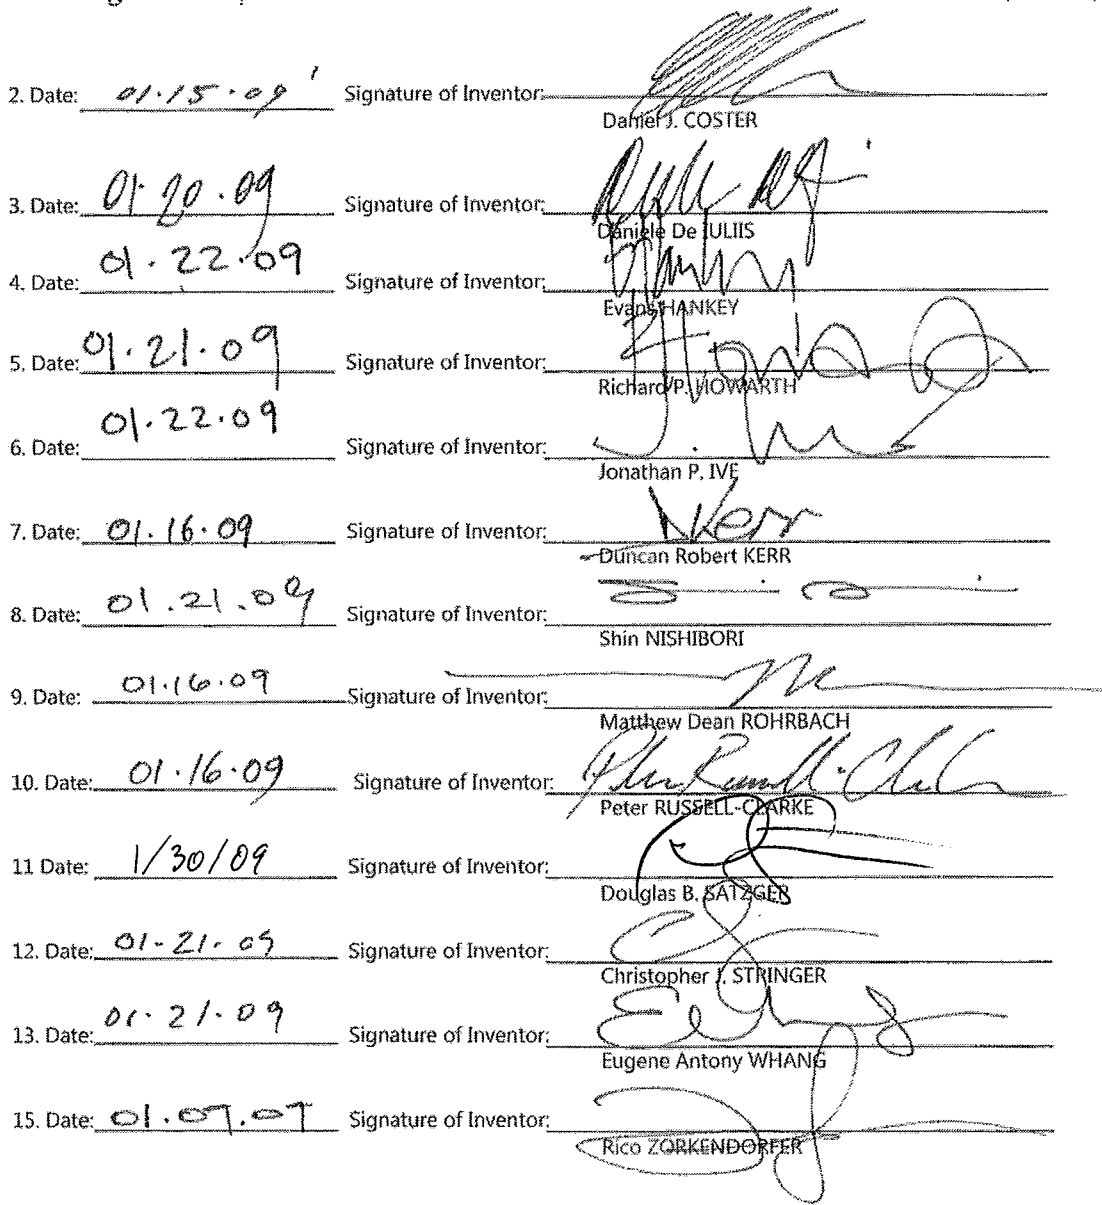 2. Date: 01.15.09 Signature of Inventor:
Daniel J. COSTER
3. Date: 01.20.09 Signature of Inventor:
Daniele De IULIIS
4. Date: 01.22.09 Signature of Inventor: Hankey
Evans HANKEY
5. Date: 01.21.09 Signature of Inventor: Howarth
Richard P. HOWARTH
6. Date: 01.22.09 Signature of Inventor:
Jonathan P. IVE
7. Date: 01.16.09 Signature of Inventor: Kerr
Duncan Robert KERR
8. Date: 01.21.09 Signature of Inventor:
Shin NISHIBORI
9. Date: 01.16.09 Signature of Inventor:
Matthew Dean ROHRBACH
10. Date: 01.16.09 Signature of Inventor: Peter Russell-Clarke
Peter RUSSELL-CLARKE
11 Date: 1/30/09 Signature of Inventor:
Douglas B. SATZGER
12. Date: 01-21-09 Signature of Inventor:
Christopher J. STRINGER
13. Date: 01.21.09 Signature of Inventor:
Eugene Antony WHANG
15. Date: 01.07.07 Signature of Inventor:
Rico ZORKENDORFER